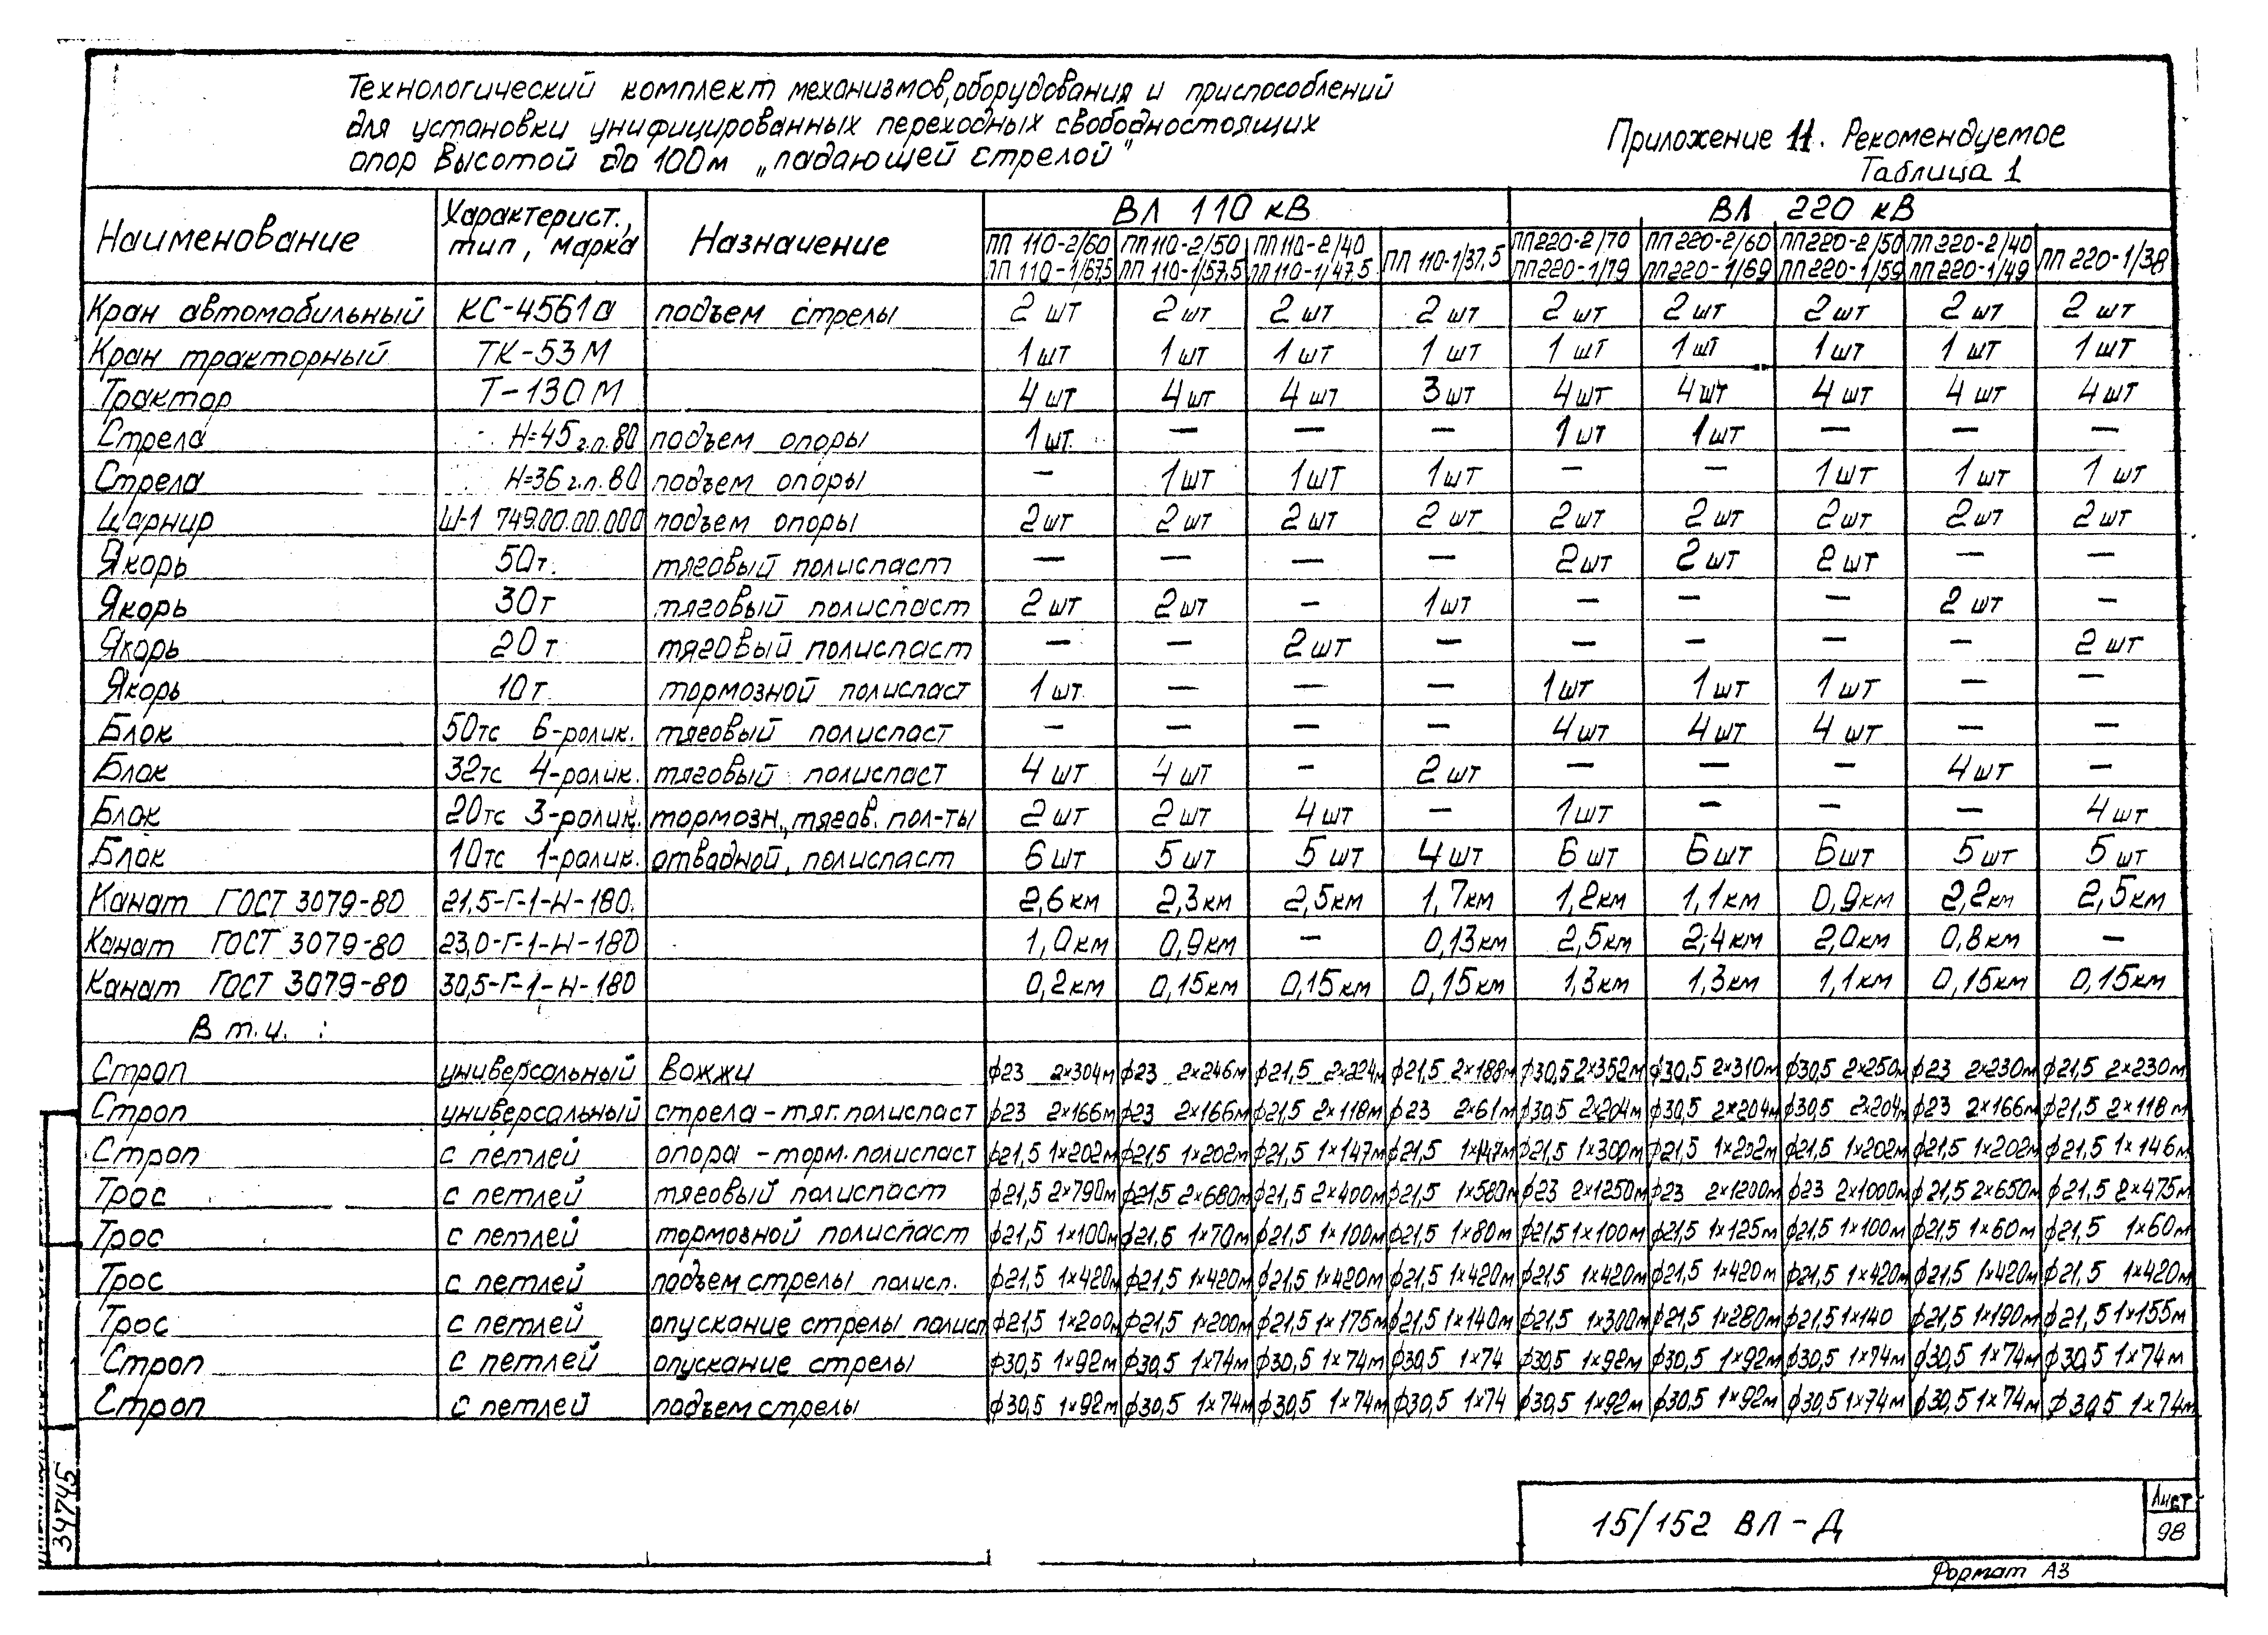 Технологический комплект механизмов, оборудования и приспособлений
для установки унифицированных переходных свободностоящих
опор высотой до 100м „падающей стрелой"
Приложение 11. Рекомендуемое
Таблица 1
Наименование | Характерист., тип, марка | Назначение | ВЛ 110 кВ | ВЛ 220 кВ
ПП 110-2/60 ПП 110-1/67,5 | ПП 110-2/50 ПП 110-1/57,5 | ПП 110-2/40 ПП 110-1/47,5 | ПП 110-1/37,5 | ПП 220-2/70 ПП 220-1/79 | ПП 220-2/60 ПП 220-1/69 | ПП 220-2/50 ПП 220-1/59 | ПП 220-2/40 ПП 220-1/49 | ПП 220-1/38
Кран автомобильный | КС-4561а | подъем стрелы | 2 шт | 2 шт | 2 шт | 2 шт | 2 шт | 2 шт | 2 шт | 2 шт | 2 шт
Кран тракторный | ТК-53М | | 1 шт | 1 шт | 1 шт | 1 шт | 1 шт | 1 шт | 1 шт | 1 шт | 1 шт
Трактор | Т-130М | | 4 шт | 4 шт | 4 шт | 3 шт | 4 шт | 4 шт | 4 шт | 4 шт | 4 шт
Стрела | Н=45 г.п.80 | подъем опоры | 1 шт. | — | — | — | 1 шт | 1 шт | — | — | —
Стрела | Н=36 г.п.80 | подъем опоры | — | 1 шт | 1 шт | 1 шт | — | — | 1 шт | 1 шт | 1 шт
Шарнир | Ш-1 749.00.00.000 | подъем опоры | 2 шт | 2 шт | 2 шт | 2 шт | 2 шт | 2 шт | 2 шт | 2 шт | 2 шт
Якорь | 50т. | тяговый полиспаст | — | — | — | — | 2 шт | 2 шт | 2 шт | — | —
Якорь | 30т | тяговый полиспаст | 2 шт | 2 шт | — | 1 шт | — | — | — | 2 шт | —
Якорь | 20т | тяговый полиспаст | — | — | 2 шт | — | — | — | — | — | 2 шт
Якорь | 10т. | тормозной полиспаст | 1 шт. | — | — | — | 1 шт | 1 шт | 1 шт | — | —
Блок | 50тс 6-ролик. | тяговый полиспаст | — | — | — | — | 4 шт | 4 шт | 4 шт | — | —
Блок | 32тс 4-ролик. | тяговый полиспаст | 4 шт | 4 шт | — | 2 шт | — | — | — | 4 шт | —
Блок | 20тс 3-ролик. | тормозн., тягов. пол-ты | 2 шт | 2 шт | 4 шт | — | 1 шт | — | — | — | 4 шт
Блок | 10тс 1-ролик. | отводной, полиспаст | 6 шт | 5 шт | 5 шт | 4 шт | 6 шт | 6 шт | 6 шт | 5 шт | 5 шт
Канат ГОСТ 3079-80 | 21,5-Г-1-Н-180. | | 2,6км | 2,3км | 2,5км | 1,7км | 1,2км | 1,1км | 0,9км | 2,2км | 2,5км
Канат ГОСТ 3079-80 | 23,0-Г-1-Н-180 | | 1,0км | 0,9км | — | 0,13км | 2,5км | 2,4км | 2,0км | 0,8км | —
Канат ГОСТ 3079-80 | 30,5-Г-1-Н-180 | | 0,2км | 0,15км | 0,15км | 0,15км | 1,3км | 1,3км | 1,1км | 0,15км | 0,15км
В т.ч. :
Строп | универсальный | вожжи | ф23 2×304м | ф23 2×246м | ф21,5 2×224м | ф21,5 2×188м | ф30,5 2×352м | ф30,5 2×310м | ф30,5 2×250м | ф23 2×230м | ф21,5 2×230м
Строп | универсальный | стрела - тяг. полиспаст | ф23 2×166м | ф23 2×166м | ф21,5 2×118м | ф23 2×61м | ф30,5 2×204м | ф30,5 2×204м | ф30,5 2×204м | ф23 2×166м | ф21,5 2×118м
Строп | с петлей | опора - торм. полиспаст | ф21,5 1×202м | ф21,5 1×202м | ф21,5 1×147м | ф21,5 1×147м | ф21,5 1×300м | ф21,5 1×202м | ф21,5 1×202м | ф21,5 1×202м | ф21,5 1×146м
Трос | с петлей | тяговый полиспаст | ф21,5 2×790м | ф21,5 2×680м | ф21,5 2×400м | ф21,5 1×580м | ф23 2×1250м | ф23 2×1200м | ф23 2×1000м | ф21,5 2×650м | ф21,5 2×475м
Трос | с петлей | тормозной полиспаст | ф21,5 1×100м | ф21,5 1×70м | ф21,5 1×100м | ф21,5 1×80м | ф21,5 1×100м | ф21,5 1×125м | ф21,5 1×100м | ф21,5 1×60м | ф21,5 1×60м
Трос | с петлей | подъем стрелы полисп. | ф21,5 1×420м | ф21,5 1×420м | ф21,5 1×420м | ф21,5 1×420м | ф21,5 1×420м | ф21,5 1×420м | ф21,5 1×420м | ф21,5 1×420м | ф21,5 1×420м
Трос | с петлей | опускание стрелы полисп | ф21,5 1×200м | ф21,5 1×200м | ф21,5 1×175м | ф21,5 1×140м | ф21,5 1×300м | ф21,5 1×280м | ф21,5 1×140 | ф21,5 1×190м | ф21,5 1×155м
Строп | с петлей | опускание стрелы | ф30,5 1×92м | ф30,5 1×74м | ф30,5 1×74м | ф30,5 1×74 | ф30,5 1×92м | ф30,5 1×92м | ф30,5 1×74м | ф30,5 1×74м | ф30,5 1×74м
Строп | с петлей | подъем стрелы | ф30,5 1×92м | ф30,5 1×74м | ф30,5 1×74м | ф30,5 1×74 | ф30,5 1×92м | ф30,5 1×92м | ф30,5 1×74м | ф30,5 1×74м | ф30,5 1×74м
34745
15/152 ВЛ-Д
Лист
98
Формат А3